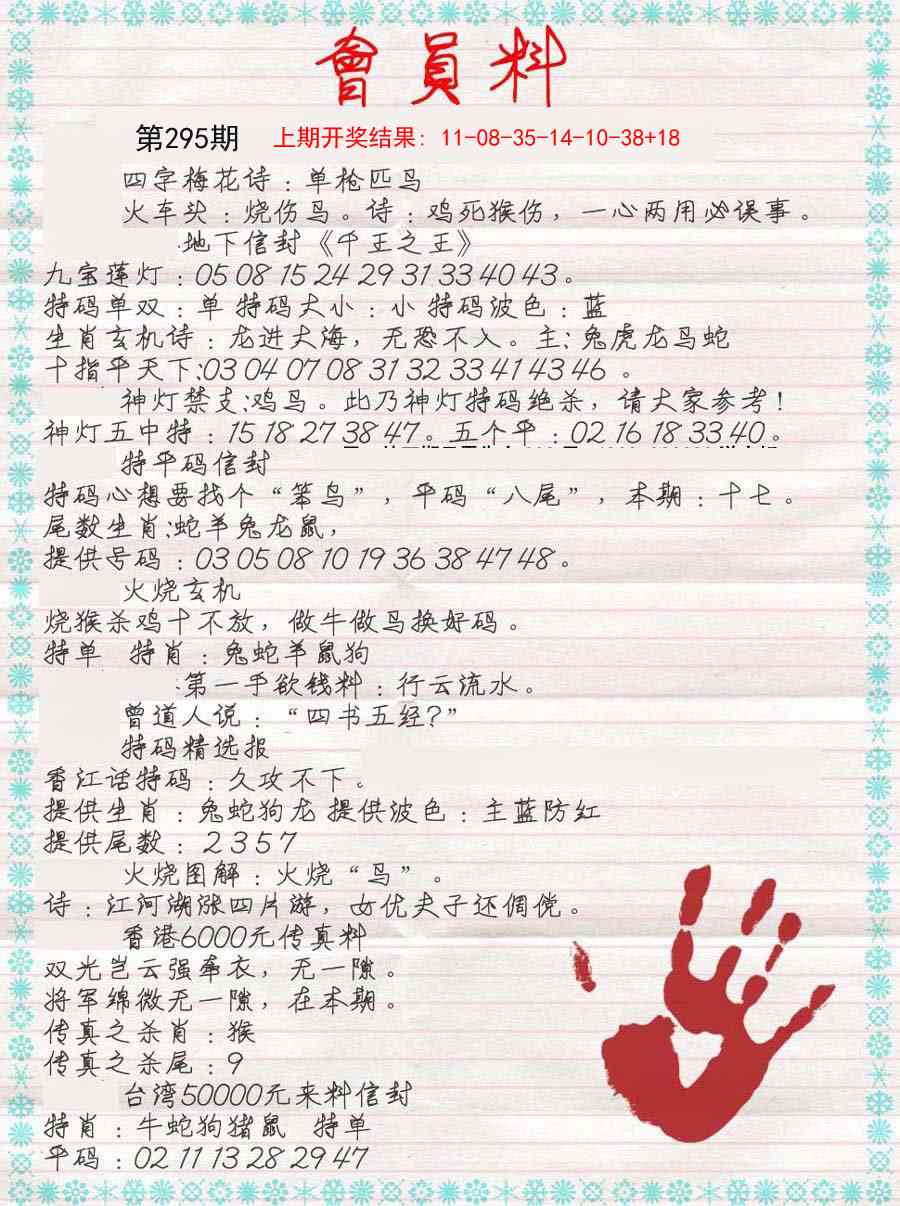 會員料
第295期 上期开奖结果: 11-08-35-14-10-38+18
四字梅花诗：单枪匹鸟
火车头：烧伤鸟。诗：鸡死猴伤，一心两用必误事。
.地下信封《千王之王》
九宝莲灯：05 08 15 24 29 31 33 40 43。
特码单双：单 特码大小：小 特码波色：蓝
生肖玄机诗：龙进大海，无恐不入。主: 兔虎龙鸟蛇
十指平天下:03 04 07 08 31 32 33 41 43 46 。
神灯禁支:鸡鸟。此乃神灯特码绝杀，请大家参考!
神灯五中特：15 18 27 38 47。五个平：02 16 18 33 40。
特平码信封
特码心想要找个“笨鸟”，平码“八尾”，本期：十七。
尾数生肖:蛇羊兔龙鼠，
提供号码：03 05 08 10 19 36 38 47 48。
火烧玄机
烧猴杀鸡十不放，做牛做鸟换好码。
特单 特肖：兔蛇羊鼠狗
.第一手欲钱料：行云流水。
曾道人说：“四书五经?”
特码精选报
香江话特码：久攻不下。
提供生肖：兔蛇狗龙 提供波色：主蓝防红
提供尾数： 2 3 5 7
火烧图解：火烧“鸟”。
诗：江河湖涨四片游，女优夫子还倜傥。
香港6000元传真料
双光岂云强牵衣，无一隙。
将军绵微无一隙，在本期。
传真之杀肖：猴
传真之杀尾：9
台湾50000元来料信封
特肖：牛蛇狗猪鼠 特单
平码：02 11 13 28 29 47